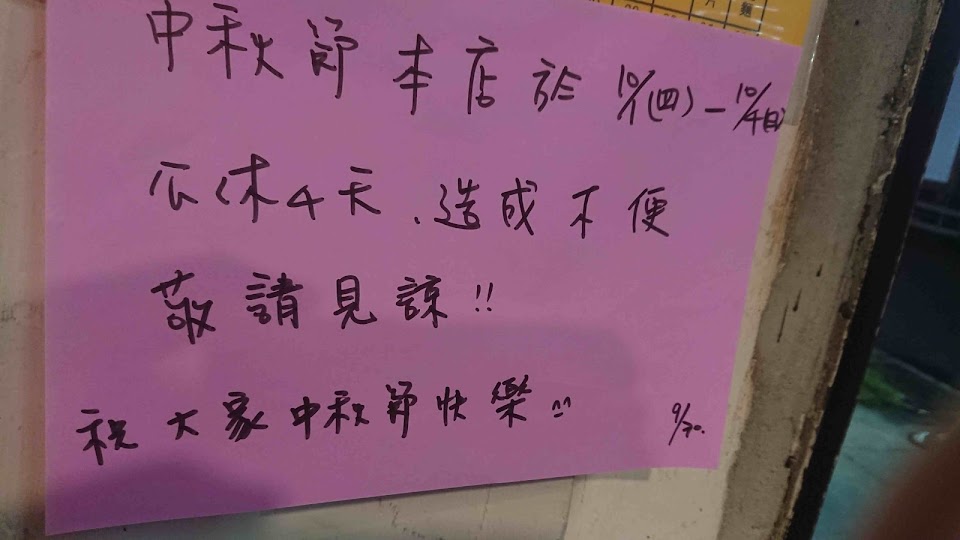 中秋節 本店於 10/1(四)－10/4(日)
公休4天、造成不便
敬請見諒!!
祝大家中秋節快樂^^
9/30.